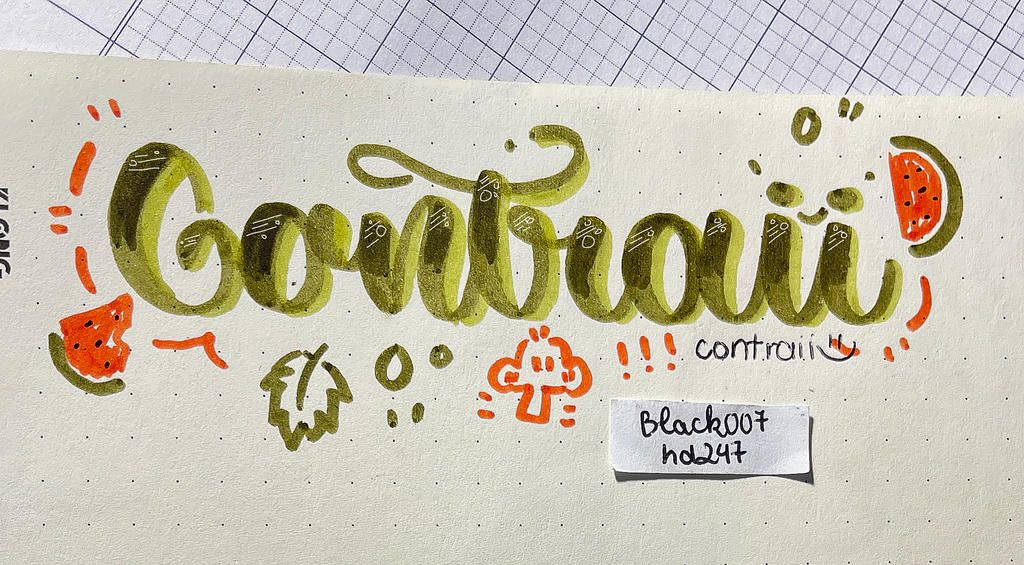 Contraiii
contraiii
Black007
hd247